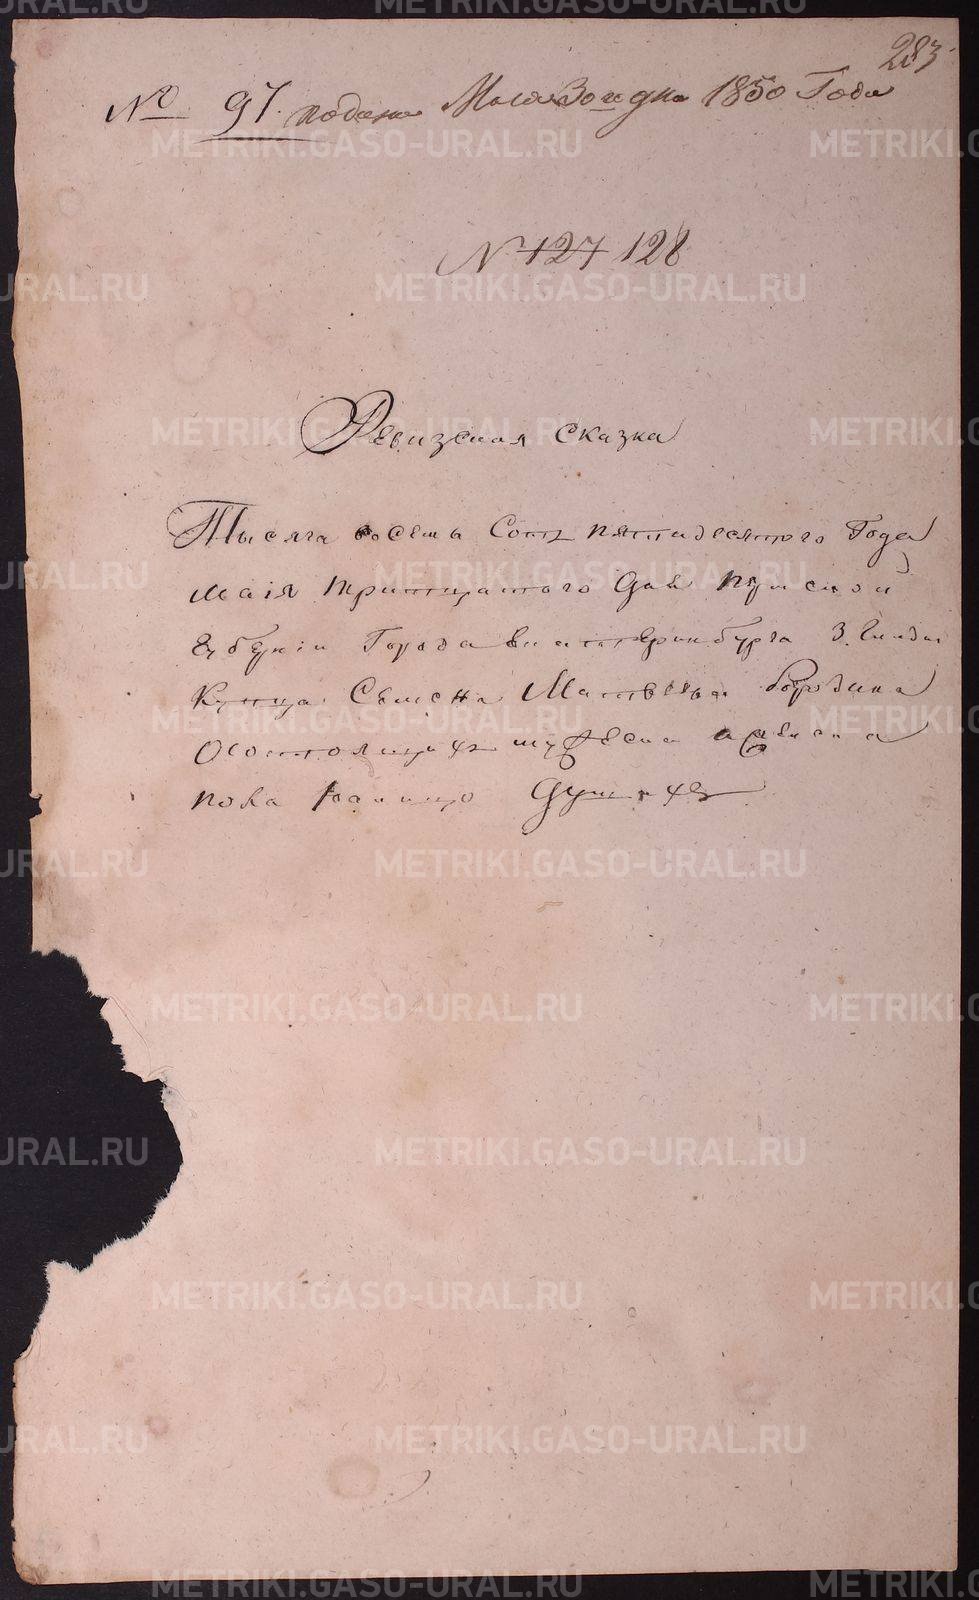 283
№ 97. подана Маія 30го дня 1850 Года
№ 127 128
Ревизская сказка
Тысяча восемь Сотъ пятидесятого Года
маія тритцатого дня Пермской
губерніи Города Екатеринбурга 3. Гилди
Купца Семена Матвеева Бородина
Осостоящихъ мужеска и женска
пола налицо Душахъ
METRIKI.GASO-URAL.RU